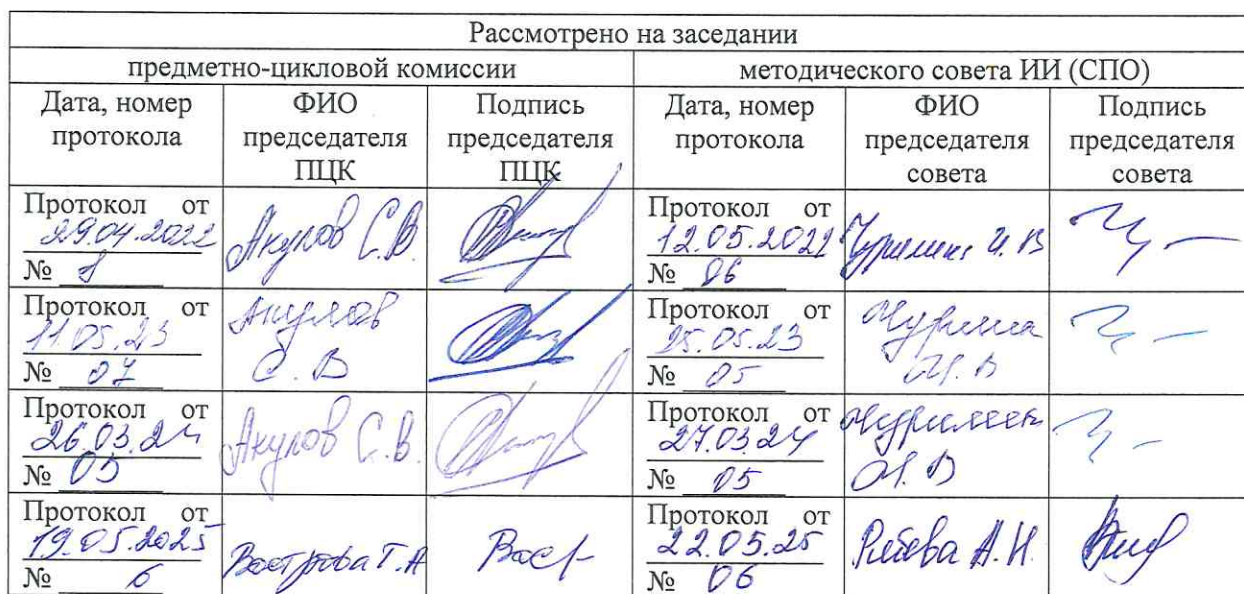 Рассмотрено на заседании
предметно-цикловой комиссии
методического совета ИИ (СПО)
Дата, номер протокола
ФИО председателя ПЦК
Подпись председателя ПЦК
Дата, номер протокола
ФИО председателя совета
Подпись председателя совета
Протокол от
29.04.2022
№ 8
Акулов С.В.
Протокол от
12.05.2022
№ 06
И. В
Протокол от
11.05.23
№ 07
Акулов
С. В
Протокол от
25.05.23
№ 05
И. В
Протокол от
26.03.24
№ 05
Акулов С.В.
Протокол от
27.03.24
№ 05
И. В
Протокол от
19.05.2025
№ 6
Вострова Т.А
Протокол от
22.05.25
№ 06
А.Н.